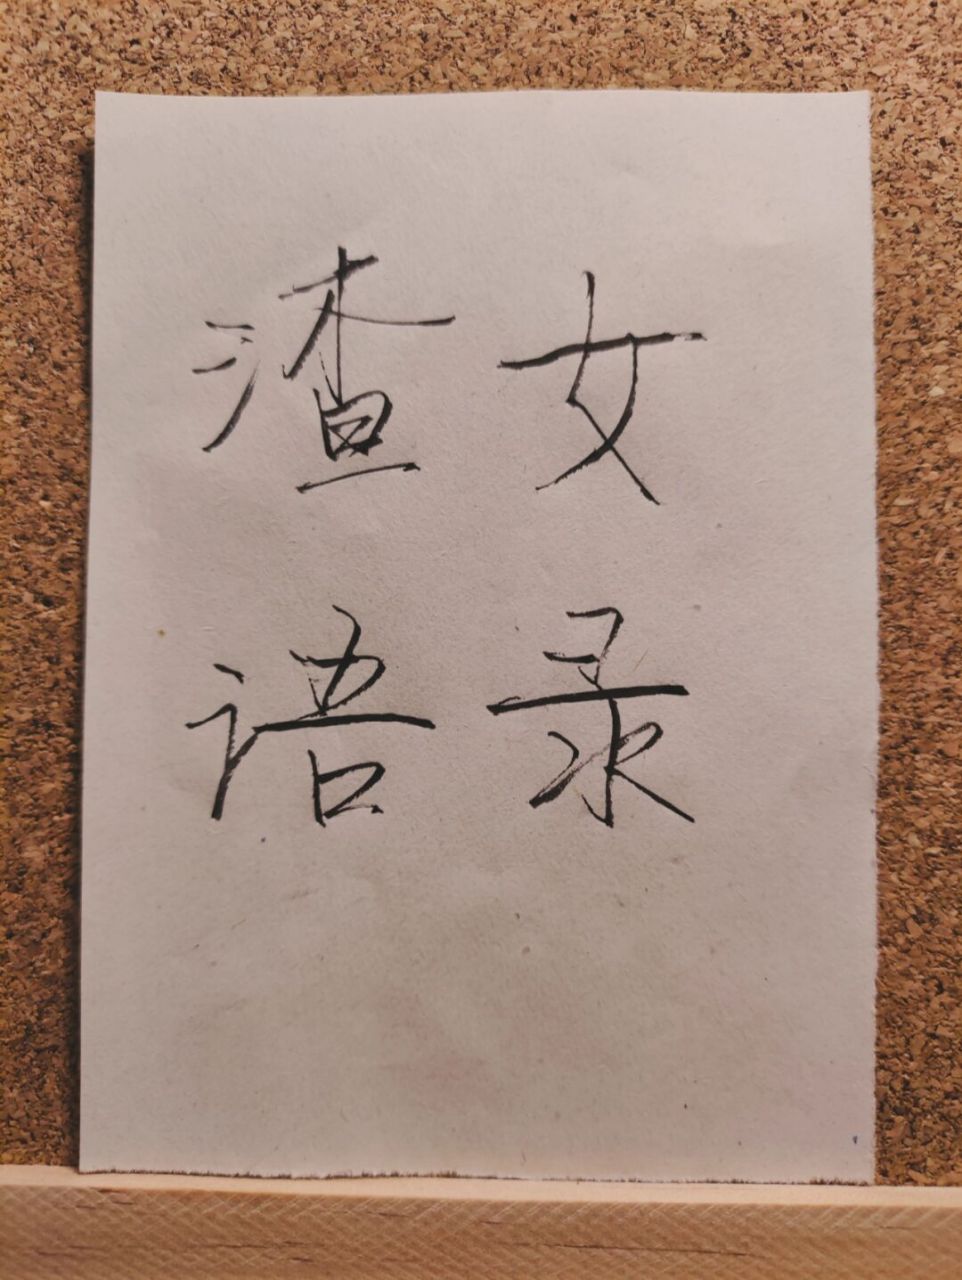 渣女
语录